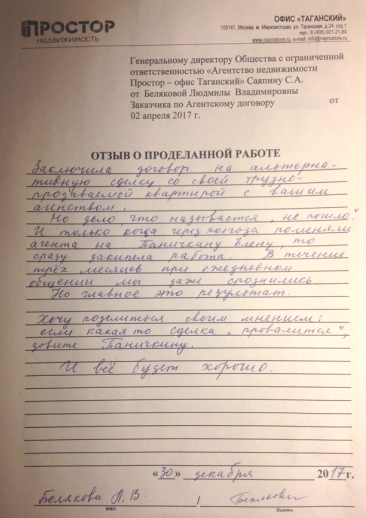 ПРОСТОР
НЕДВИЖИМОСТЬ
ОФИС «ТАГАНСКИЙ»
109147, Москва, м. Марксистская, ул. Таганская, д.24, стр.1
тел.: 8 (495) 921-21-80
www.naprostore.ru, e-mail: info@naprostore.ru
Генеральному директору Общества с ограниченной
ответственностью «Агентство недвижимости
Простор – офис Таганский» Саяпину С.А.
от Беляковой Людмилы Владимировны
Заказчика по Агентскому договору от
02 апреля 2017 г.
ОТЗЫВ О ПРОДЕЛАННОЙ РАБОТЕ
Заключила договор на альтерна-
тивную сделку со своей трудно-
продаваемой квартирой с вашим
агинством.
Но дело, что называется, „не пошло."
И только когда через полгода поменяли
агента на Паничкину Елену, то
сразу закипела работа. В течение
трёх месяцев при ежедневном
общении мы даже сроднились.
Но главное это результат.
Хочу поделиться своим мнением:
если какая то сделка „провалится",
зовите Паничкину.
И всё будет хорошо.
«30» декабря 2017г.
Белякова Л. В. /
ФИО Подпись